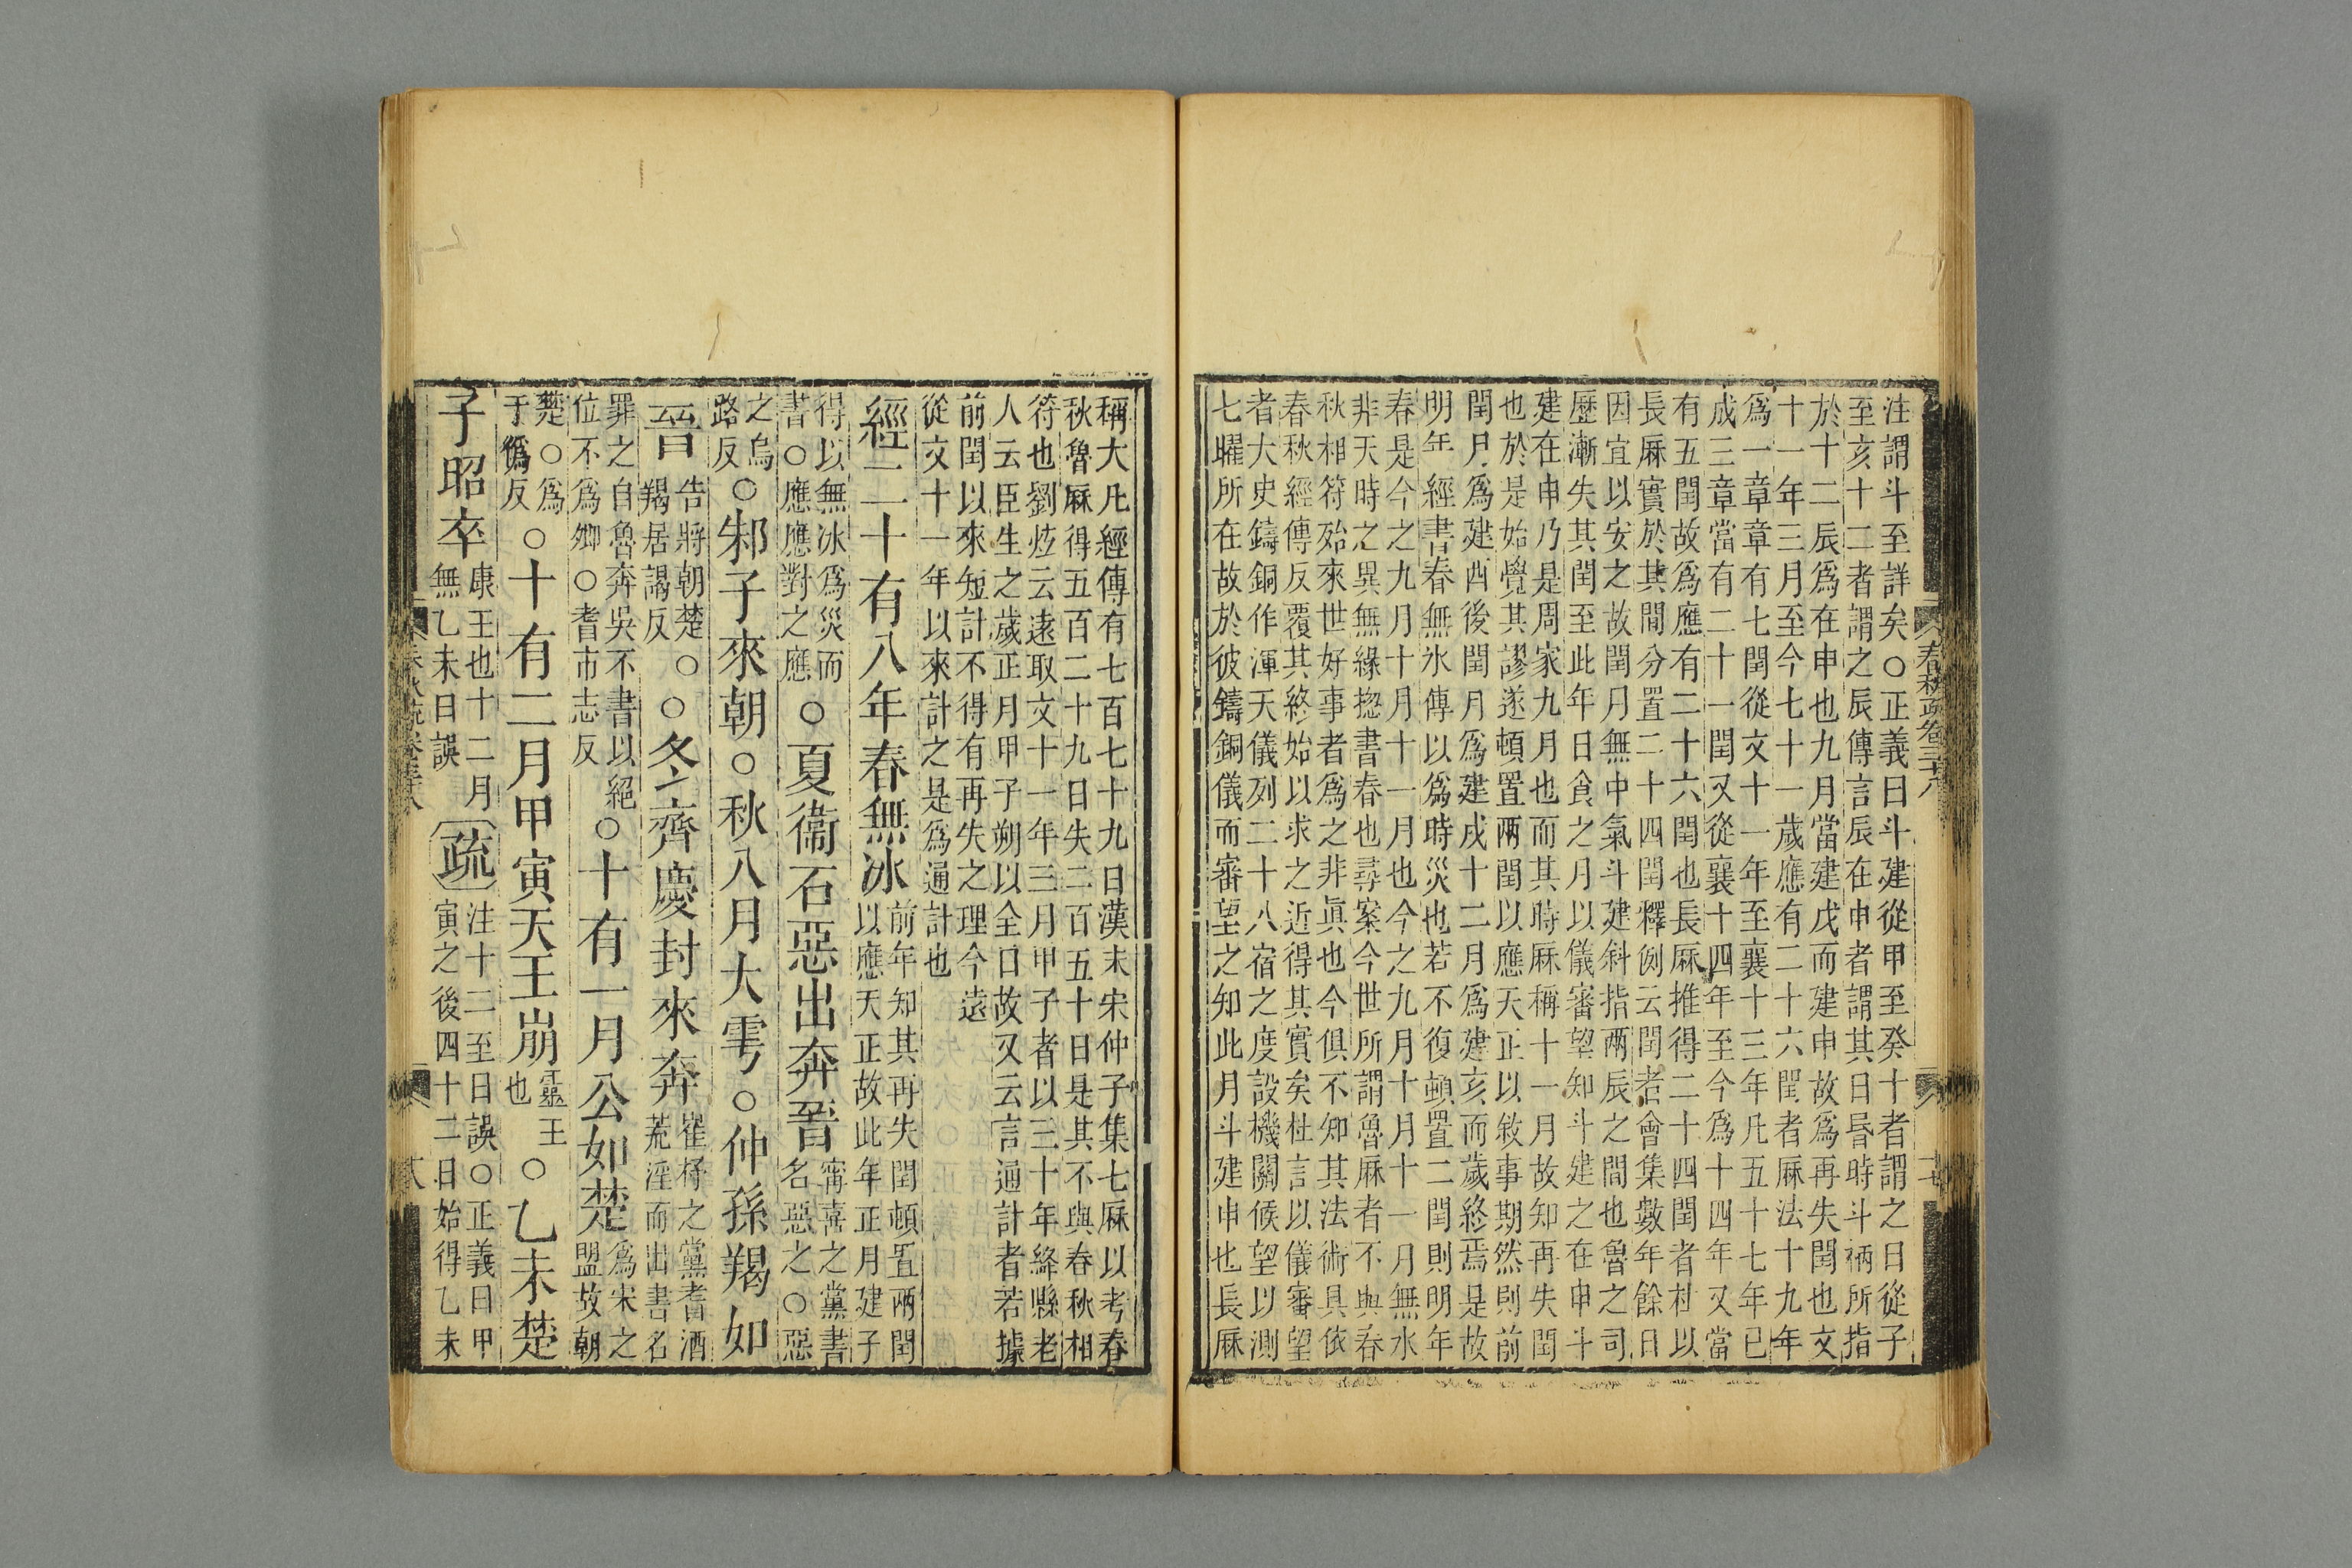 注謂斗至詳矣○正義曰斗建從甲至癸十者謂之日從子
至亥十二者謂之辰傳言辰在申者謂其日昏時斗柄所指
於十二辰爲在申也九月當建戌而建申故爲再失閏也文
十一年三月至今七十一歲應有二十六閏者厤法十九年
爲一章章有七閏從文十一年至襄十三年凡五十七年已
成三章當有二十一閏又從襄十四年至今爲十四年又當
有五閏故爲應有二十六閏也長厤推得二十四閏者杜以
長厤實於其間分置二十四閏釋例云閏者會集數年餘日
因宜以安之故閏月無中氣斗建斜指兩辰之間也魯之司
歷漸失其閏至此年日食之月以儀審望知斗建之在申斗
建在申乃是周家九月也而其時厤稱十一月故知再失閏
也於是始覺其謬遂頓置兩閏以應天正以敘事期然則前
閏月爲建酉後閏月爲建戌十二月爲建亥而歲終焉是故
明年經書春無氷傳以爲時災也若不復頓置二閏則明年
春是今之九月十月十一月也今之九月十月十一月無氷
非天時之異無緣揔書春也尋案今世所謂魯厤者不與春
秋相符殆來世好事者爲之非眞也今俱不知其法術具依
春秋經傳反覆其終始以求之近得其實矣杜言以儀審望
者大史鑄銅作渾天儀列二十八宿之度設機關候望以測
七曜所在故於彼鑄銅儀而審望之知此月斗建申也長厤
春秋疏卷三十八
稱大凡經傳有七百七十九日漢末宋仲子集七厤以考春
秋魯厤得五百二十九日失二百五十日是其不與春秋相
符也劉炫云遠取文十一年三月甲子者以三十年絳縣老
人云臣生之歲正月甲子朔以全日故又云言通計者若據
前閏以來短計不得有再失之理今遠
從文十一年以來計之是爲通計也
經二十有八年春無冰前年知其再失閏頓置兩閏
以應天正故此年正月建子
得以無冰爲災而
書○應應對之應○夏衞石惡出奔晉甯喜之黨書
名惡之○惡
之烏
路反○邾子來朝○秋八月大雩○仲孫羯如
晉告將朝楚○
羯居謁反○冬齊慶封來奔崔杼之黨耆酒
荒淫而出書名
罪之自魯奔吳不書以絕
位不爲卿○耆市志反○十有一月公如楚爲宋之
盟故朝
楚○爲
于僞反○十有二月甲寅天王崩靈王
也○乙未楚
子昭卒康王也十二月
無乙未日誤疏注十二至日誤○正義曰甲
寅之後四十二日始得乙未